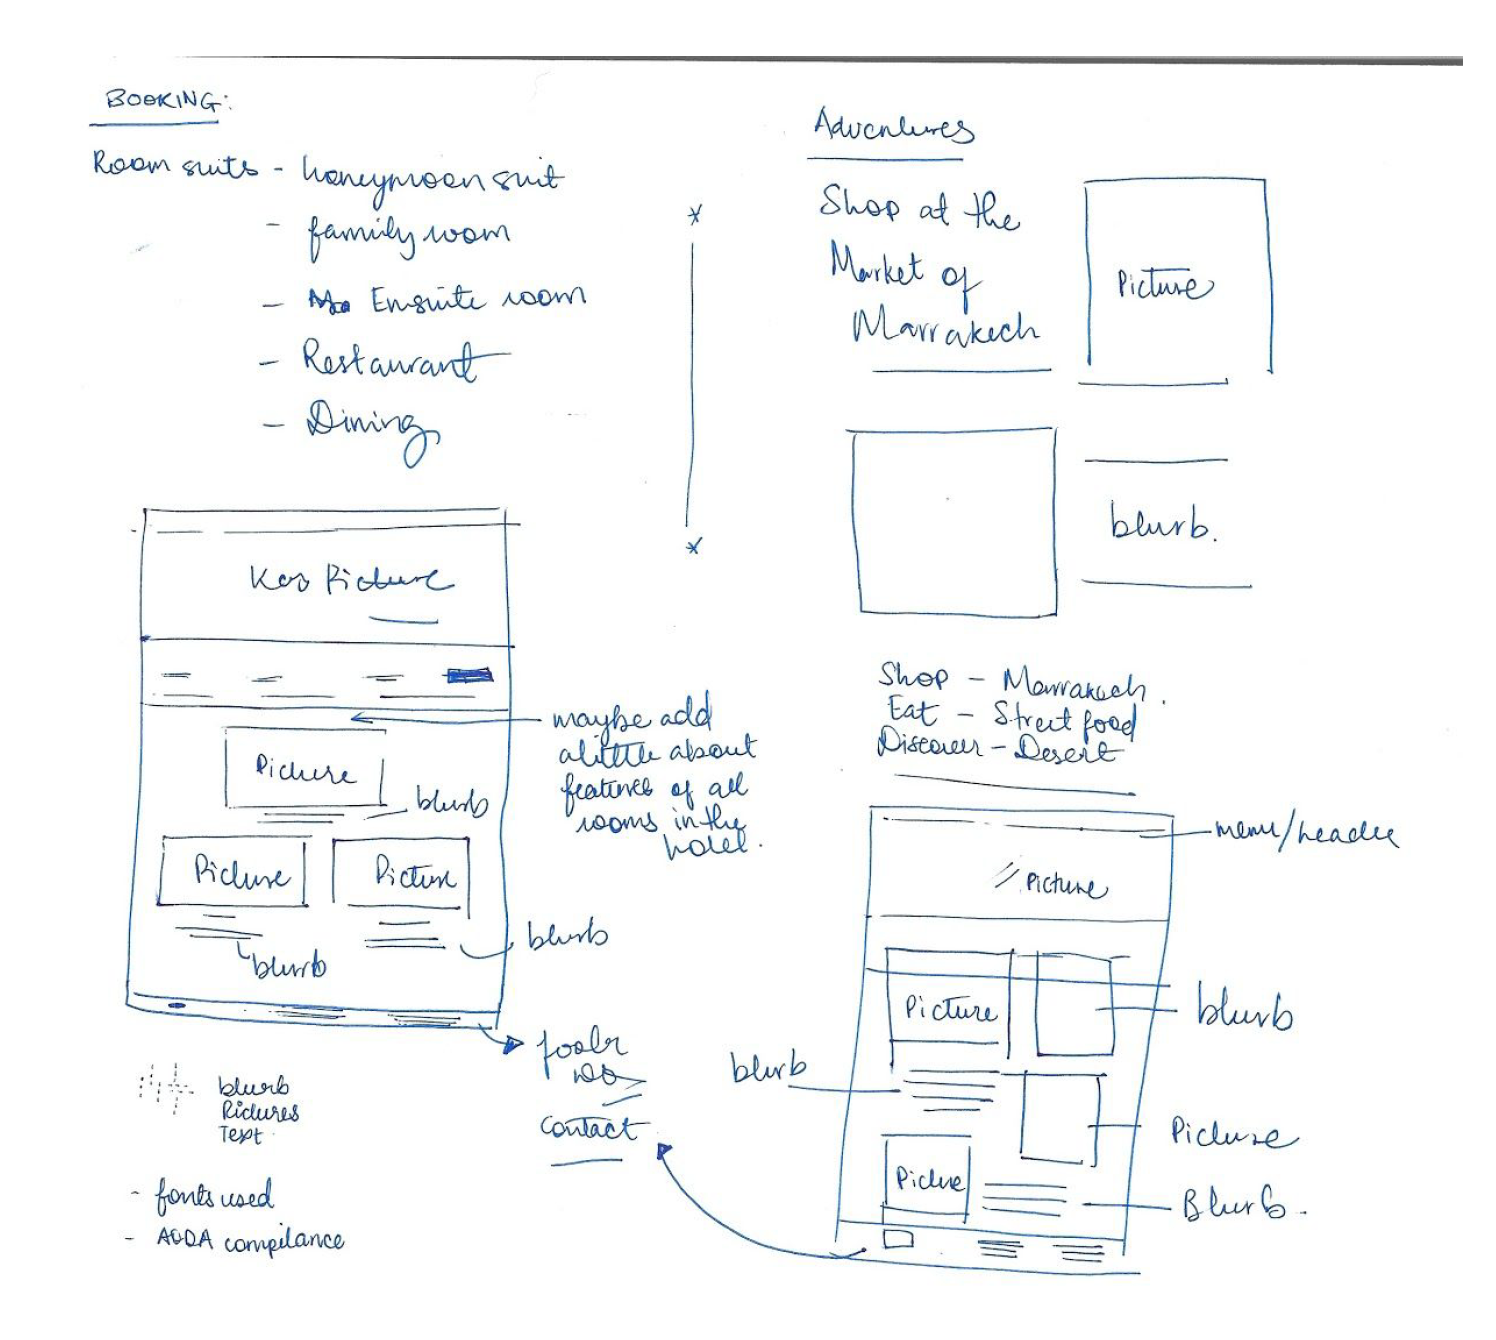 BOOKING:
Room suits - honeymoon suit
- family room
- Ensuite room
- Restaurant
- Dining
Adventures
Shop at the
Market of
Marrakech
Picture
blurb.
Picture
Picture
blurb
Picture
Picture
blurb
blurb
maybe add
a little about
features of all
rooms in the
hotel.
Shop - Marrakech.
Eat - Street food
Discover - Desert
menu/header
Picture
Picture
blurb
blurb
Picture
Picture
Blurb.
footer
contact
blurb
Pictures
Text.
- fonts used
- AODA compilance